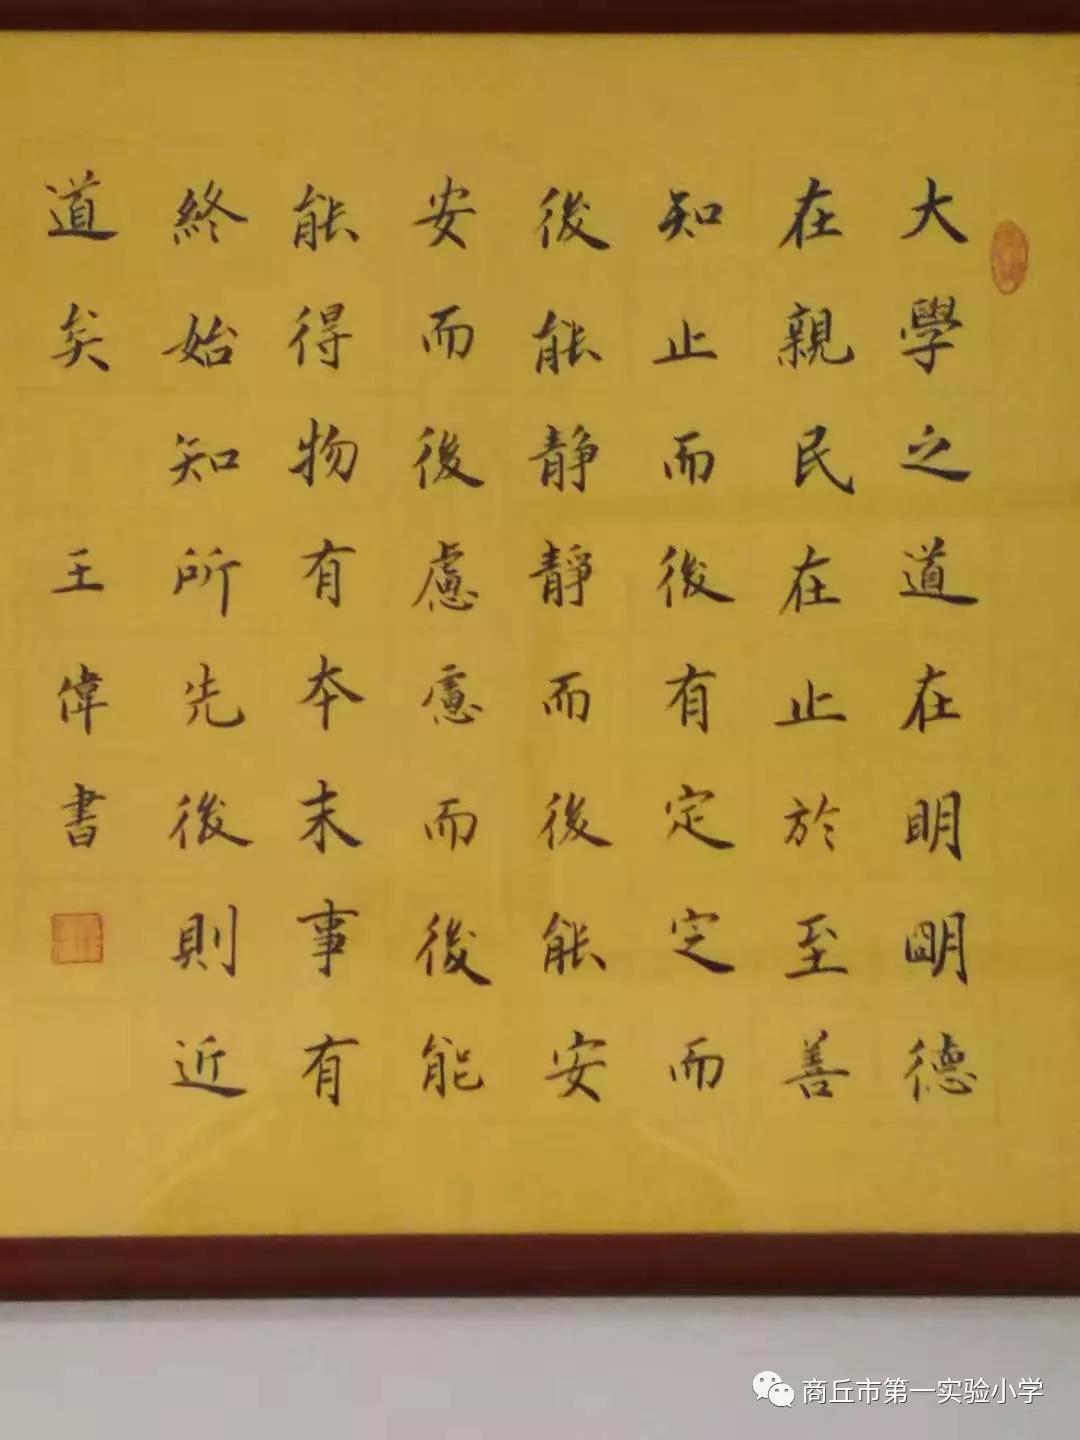 大學之道在明明德
在親民在止於至善
知止而後有定定而
後能靜靜而後能安
安而後慮慮而後能
能得物有本末事有
終始知所先後則近
道矣
王偉書
商丘市第一实验小学